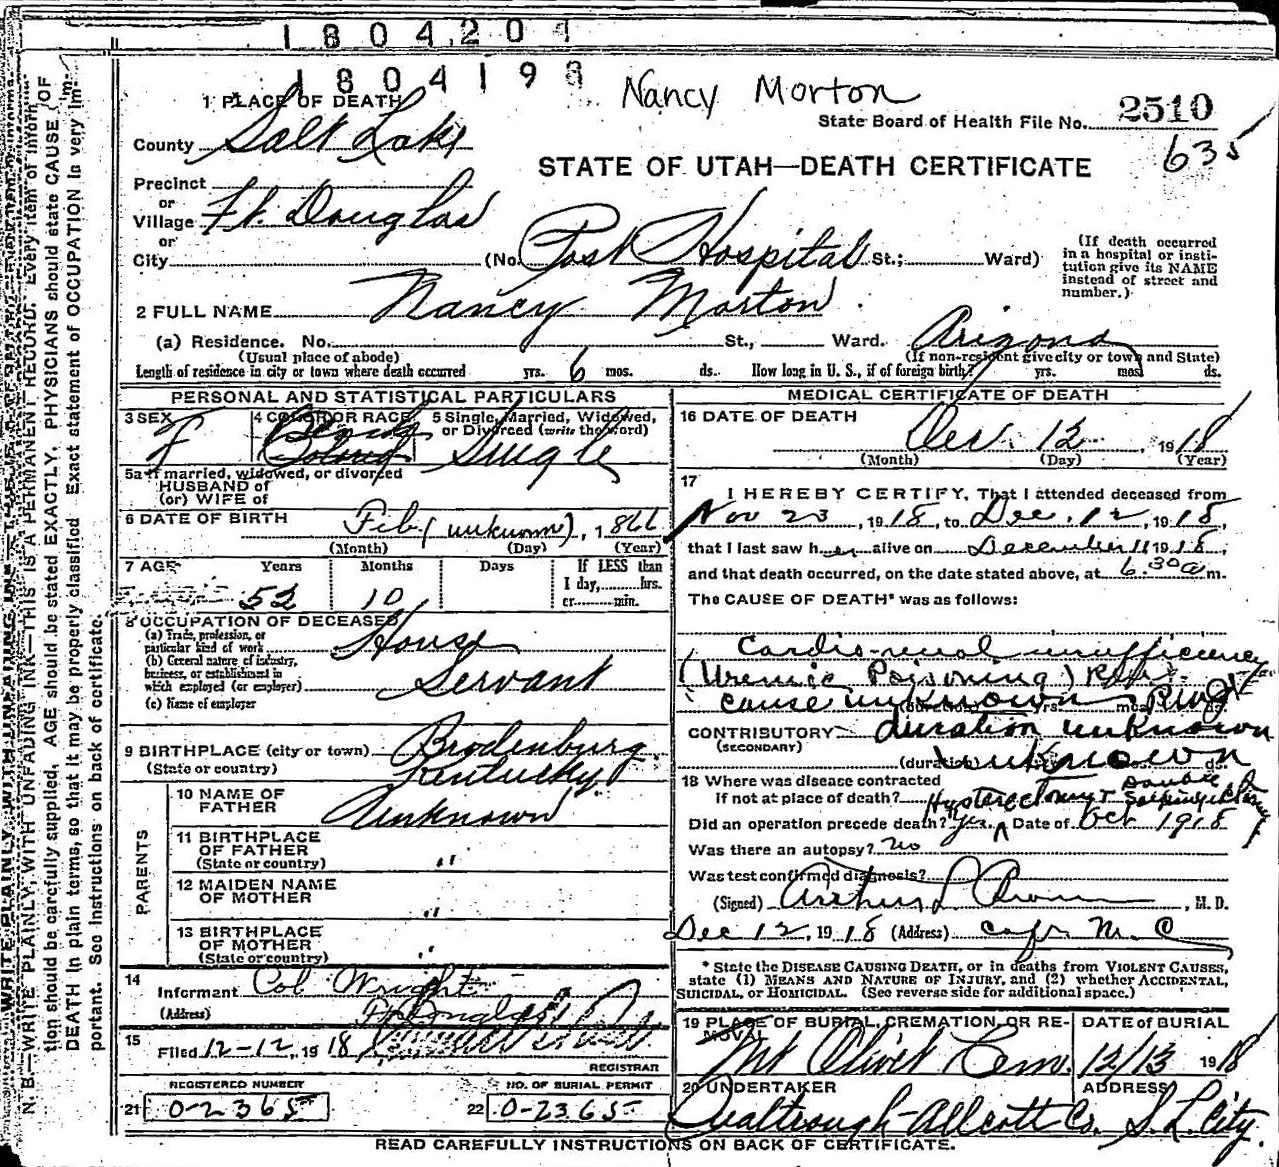 1804204
1804193
Nancy Morton
1 PLACE OF DEATH
State Board of Health File No. 2510
635
County Salt Lake
STATE OF UTAH—DEATH CERTIFICATE
Precinct
or
Village Ft. Douglas
or
City (No. Post Hospital St.; Ward)
(If death occurred
in a hospital or insti-
tution give its NAME
instead of street and
number.)
2 FULL NAME Nancy Morton.
(a) Residence. No. St., Ward. Arizona
(Usual place of abode) (If non-resident give city or town and State)
Length of residence in city or town where death occurred yrs. 6 mos. ds. How long in U. S., if of foreign birth? yrs. mos. ds.
PERSONAL AND STATISTICAL PARTICULARS
3 SEX F
4 COLOR OR RACE Black Colored
5 Single, Married, Widowed,
or Divorced (write the word)
Single
5a If married, widowed, or divorced
HUSBAND of
(or) WIFE of
6 DATE OF BIRTH Feb. (unknown), 1866
(Month) (Day) (Year)
7 AGE Years Months Days If LESS than
1 day, hrs.
or min.
52 10
8 OCCUPATION OF DECEASED
(a) Trade, profession, or
particular kind of work House
(b) General nature of industry,
business, or establishment in
which employed (or employer) Servant
(c) Name of employer
9 BIRTHPLACE (city or town) Brodenburg
(State or country) Kentucky
PARENTS
10 NAME OF
FATHER Unknown
11 BIRTHPLACE
OF FATHER
(State or country) "
12 MAIDEN NAME
OF MOTHER "
13 BIRTHPLACE
OF MOTHER
(State or country) "
14
Informant Col Wright
(Address) Ft Douglas
15
Filed 12-12, 1918
REGISTRAR
REGISTERED NUMBER
21 0-2365
NO. OF BURIAL PERMIT
22 0-2365
MEDICAL CERTIFICATE OF DEATH
16 DATE OF DEATH
Dec. 12 1918
(Month) (Day) (Year)
17
I HEREBY CERTIFY, That I attended deceased from
Nov 23, 1918, to Dec. 12, 1918,
that I last saw her alive on December 11 1918,
and that death occurred, on the date stated above, at 6.30 a m.
The CAUSE OF DEATH* was as follows:
Cardio-renal insufficiency
(Uremic Poisoning)
cause unknown
(duration) yrs. mos. ds.
CONTRIBUTORY duration unknown
(SECONDARY)
(duration) unknown ds.
18 Where was disease contracted
If not at place of death? Hysterectomy + double Salpingectomy
Did an operation precede death? Yes. Date of Oct 1918
Was there an autopsy? no
Was test confirmed diagnosis?
(Signed) Arthur L , M. D.
Dec 12, 1918 (Address) Capt M. C
* State the DISEASE CAUSING DEATH, or in deaths from VIOLENT CAUSES,
state (1) MEANS AND NATURE OF INJURY, and (2) whether ACCIDENTAL,
SUICIDAL, or HOMICIDAL. (See reverse side for additional space.)
19 PLACE OF BURIAL, CREMATION, OR RE-
MOVAL
Mt Olivet Cem.
DATE OF BURIAL
12/13 1918
20 UNDERTAKER
Watrough-Allcott Co.
ADDRESS
S. L. City.
READ CAREFULLY INSTRUCTIONS ON BACK OF CERTIFICATE.
N. B.—WRITE PLAINLY, WITH UNFADING INK—THIS IS A PERMANENT RECORD. Every item of informa-
tion should be carefully supplied. AGE should be stated EXACTLY. PHYSICIANS should state CAUSE OF
DEATH in plain terms, so that it may be properly classified. Exact statement of OCCUPATION is very im-
portant. See instructions on back of certificate.